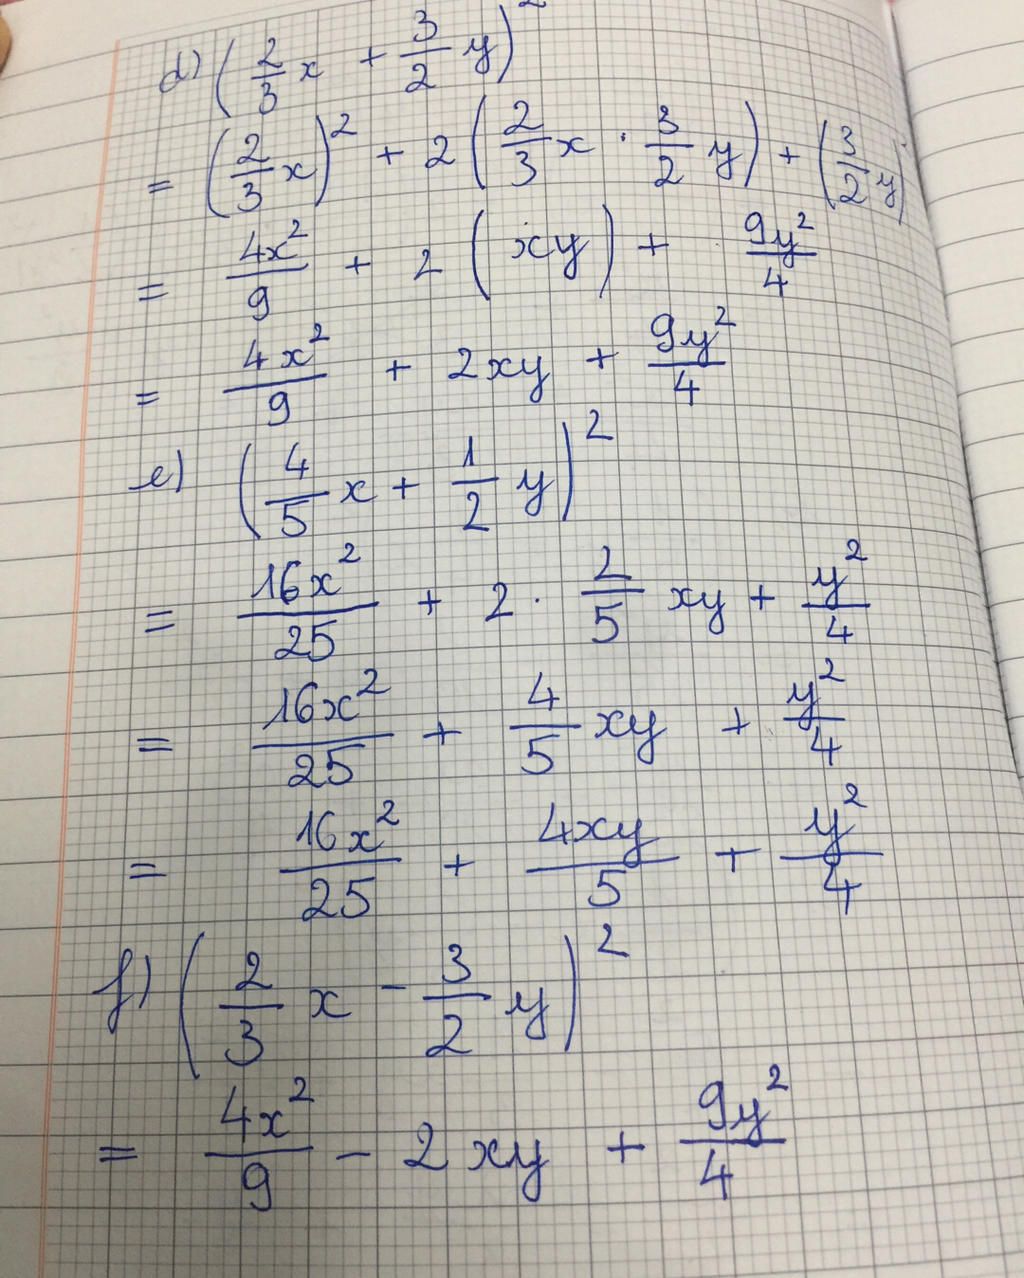 d) (2/3 x + 3/2 y)²
= (2/3 x)² + 2 (2/3 x · 3/2 y) + (3/2 y)
= 4x²/9 + 2 (xy) + 9y²/4
= 4x²/9 + 2xy + 9y²/4
e) (4/5 x + 1/2 y)²
= 16x²/25 + 2 · 2/5 xy + y²/4
= 16x²/25 + 4/5 xy + y²/4
= 16x²/25 + 4xy/5 + y²/4
f) (2/3 x - 3/2 y)²
= 4x²/9 - 2xy + 9y²/4